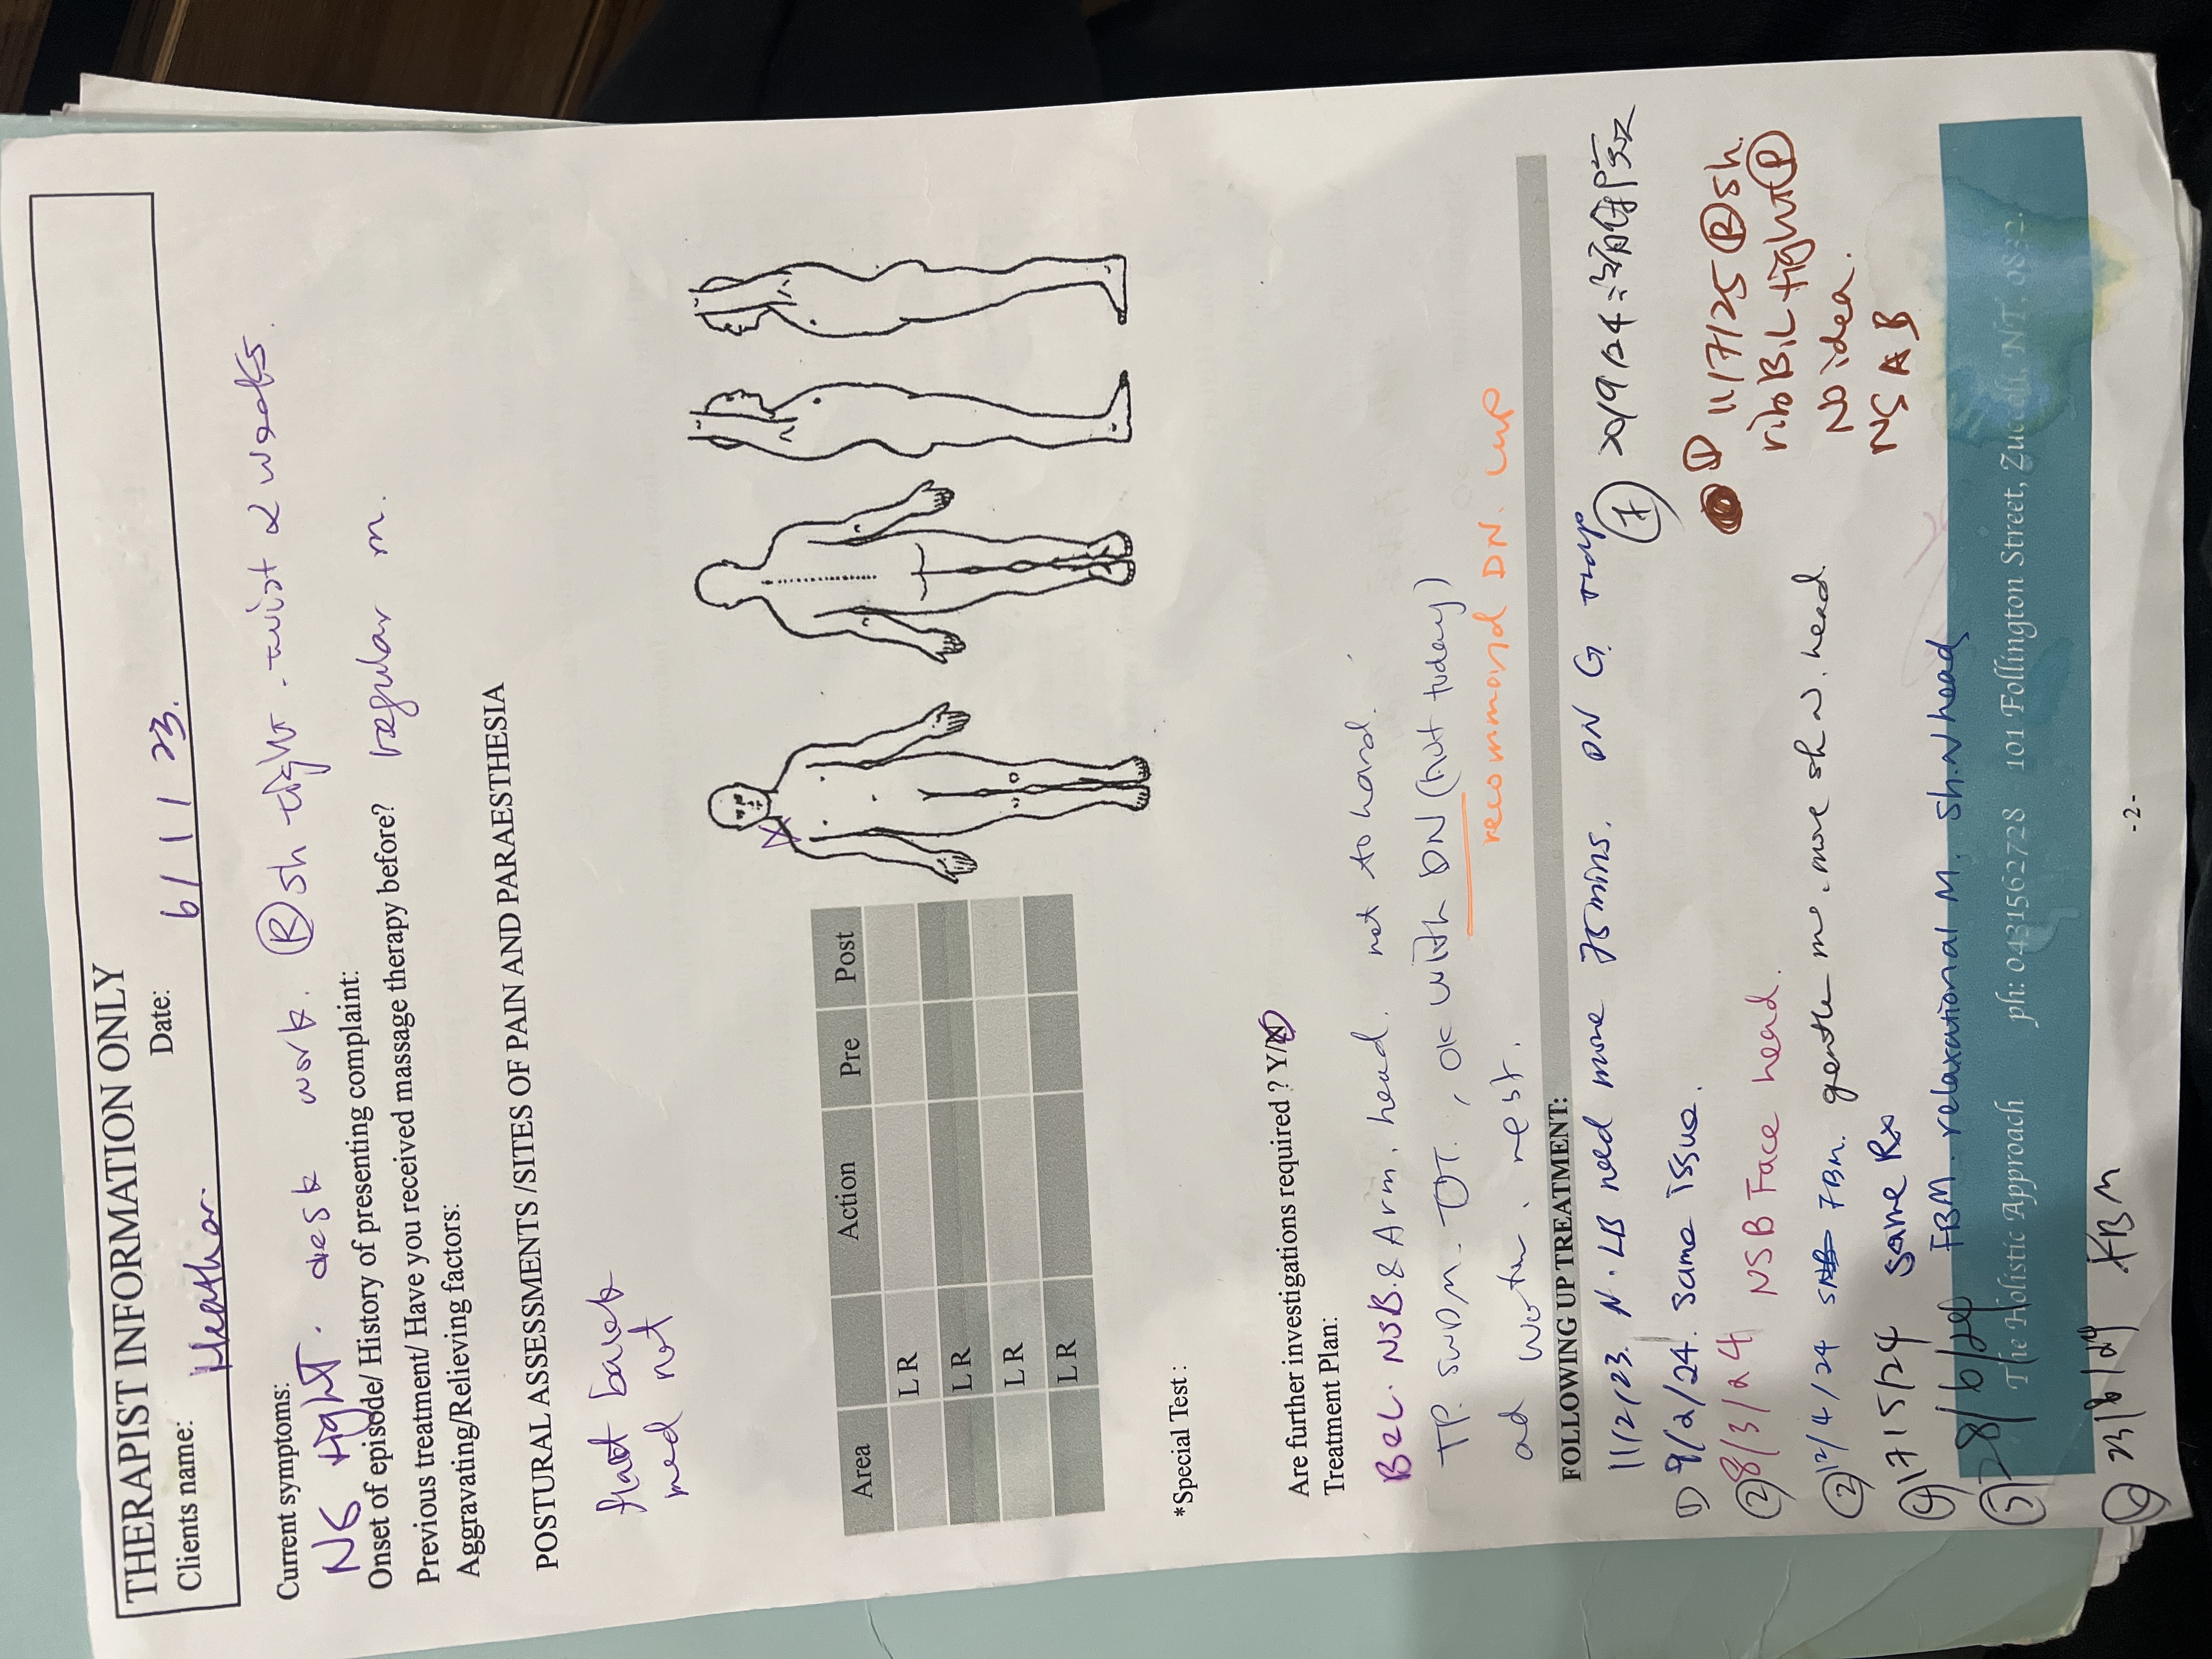 THERAPIST INFORMATION ONLY
Clients name: Heather. Date: 6/1/23.
Current symptoms: desk work. Ⓡ sh tight. twist 2 weeks.
NS tight.
Onset of episode/ History of presenting complaint:
Previous treatment/ Have you received massage therapy before? regular m.
Aggravating/Relieving factors:
POSTURAL ASSESSMENTS /SITES OF PAIN AND PARAESTHESIA
med not
Area Action Pre Post
L R
L R
L R
L R
*Special Test :
Are further investigations required ? Y/N
Treatment Plan:
NSB. & Arm. head. not to hard.
TP. SWDM. , OK with DN (not today)
recommand DN. cup
and water. rest.
FOLLOWING UP TREATMENT:
11/2/23. N. LB need more 75mins. DN G. trap
① 9/2/24. same issue.
② 8/3/24 NSB Face head.
② 12/4/24 FBM. gentle m. more sh N. head.
④ 17/5/24 same Rx
⑤ 28/6/24 FBM. relaxational M. sh. N head
The Holistic Approach ph: 0431562728 101 Follington Street, Zuccoli, NT, 0832.
23/8/24 FBM
⑦ 9/24
① 11/7/25 Ⓡ sh.
tight Ⓟ
No idea.
NS A B
-2-